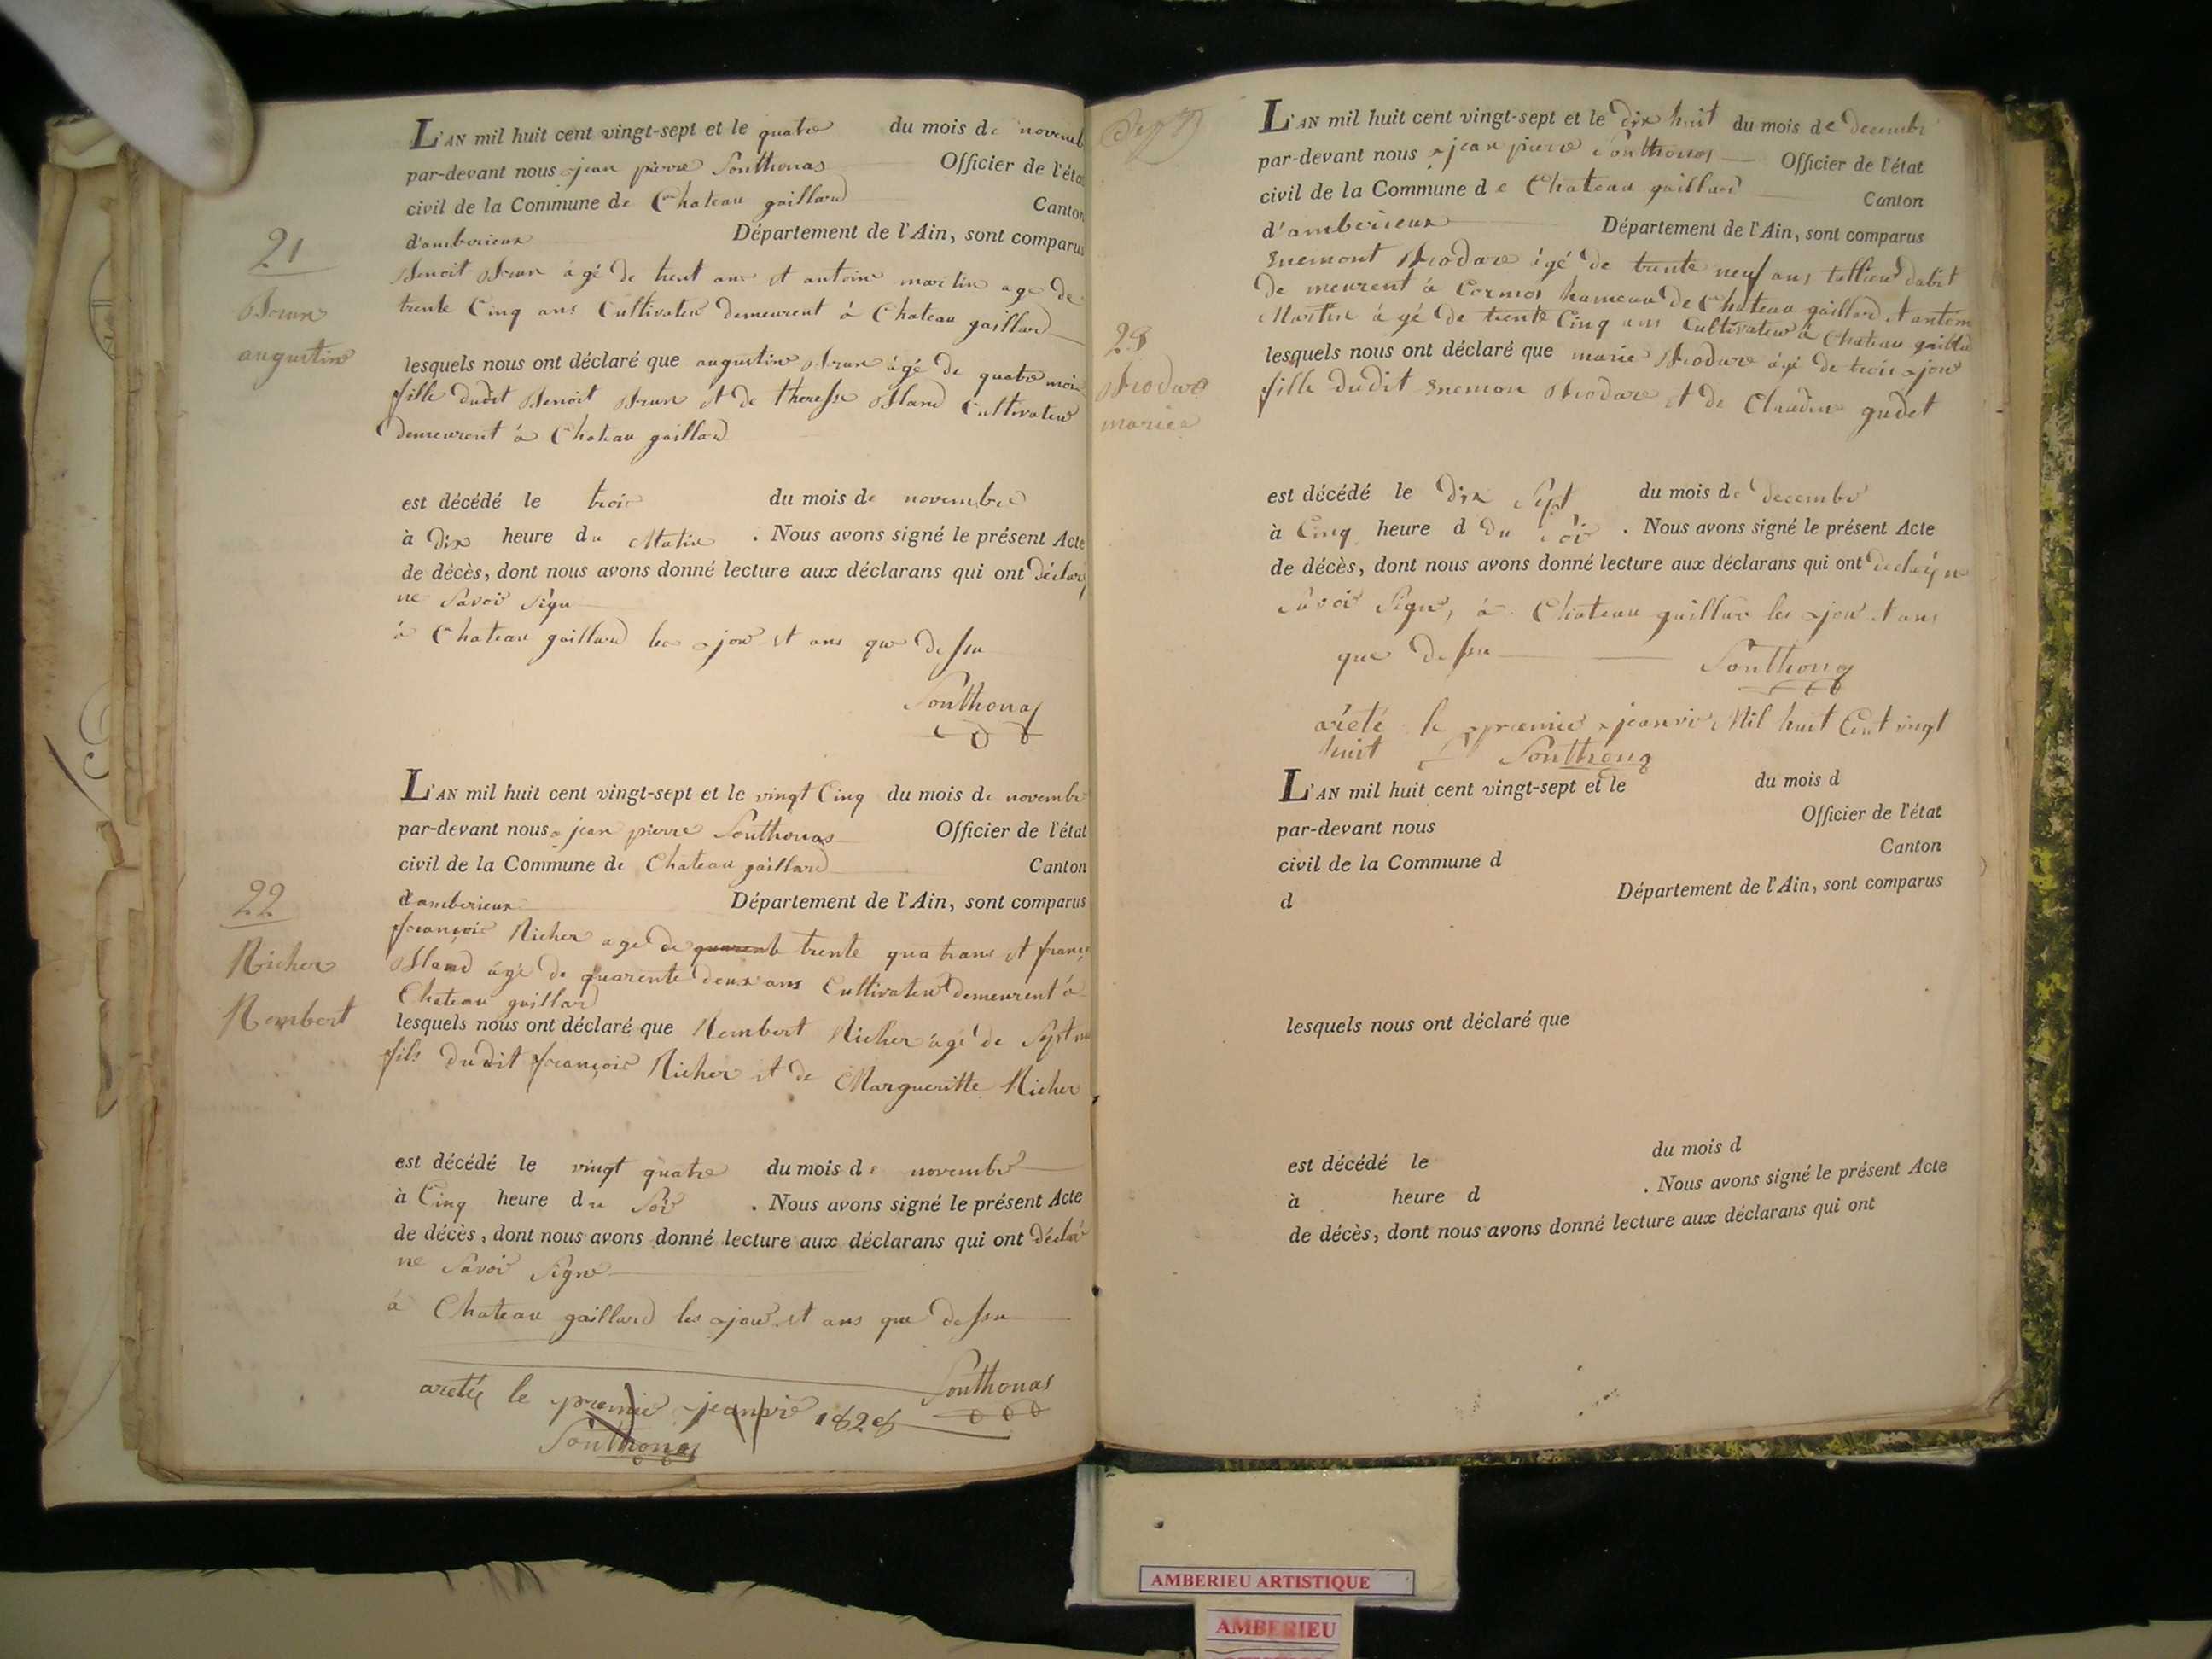 21
Brun
augustine
L'AN mil huit cent vingt-sept et le quatre du mois de novemb
par-devant nous jean pierre Ponthonas Officier de l'éta
civil de la Commune de Chateau gaillard Canton
d'amberieux Département de l'Ain, sont comparus
Benoit Brun âgé de trent ans et antoine martin age de
trente Cinq ans Cultivateur demeurent à Chateau gaillard
lesquels nous ont déclaré que augustine Brun âgé de quatre moi
fille dudit Benoit Brun et de theresse Bland Cultivateur
demeurent à Chateau gaillard
est décédé le trois du mois de novembre
à dix heure du Matin . Nous avons signé le présent Acte
de décès, dont nous avons donné lecture aux déclarans qui ont déclaré
ne Savoir Signe
à Chateau gaillard les jour et ans que dessu
Ponthonas
22
Richer
Rembert
L'AN mil huit cent vingt-sept et le vingt Cinq du mois de novembre
par-devant nous jean pierre Ponthonas Officier de l'état
civil de la Commune de Chateau gaillard Canton
d'amberieux Département de l'Ain, sont comparus
françois Richer age de quarente trente quatrans et franç
Bland âgé de quarente deux ans Cultivateur demeurent à
Chateau gaillard
lesquels nous ont déclaré que Rembert Richer âgé de Sept
fils dudit françois Richer et de Margueritte Richer
est décédé le vingt quatre du mois de novembre
à Cinq heure du Soir . Nous avons signé le présent Acte
de décès, dont nous avons donné lecture aux déclarans qui ont déclaré
ne Savoir Signe
à Chateau gaillard les jour et ans que dessu
Ponthonas
areté le premie jeanvie 1828
Ponthonas
L'AN mil huit cent vingt-sept et le dix huit du mois de decembre
par-devant nous jean pierre Ponthonas Officier de l'état
civil de la Commune de Chateau gaillard Canton
d'amberieux Département de l'Ain, sont comparus
Enemont Brodare âgé de trente neuf ans tallieur dabit
de meurent à Cormos hameau de Chateau gaillard et antoin
Martin âgé de trente Cinq ans Cultivateur à Chateau gaillard
23
Brodare
marie
lesquels nous ont déclaré que marie Brodare âgé de trois jour
fille dudit Enemon Brodare et de Claudine gudet
est décédé le dix Sept du mois de decembre
à Cinq heure d du Soir . Nous avons signé le présent Acte
de décès, dont nous avons donné lecture aux déclarans qui ont declaré ne
Savoir Signe, à Chateau gaillar les jour et ans
que dessu Ponthonas
areté le premie jeanvie Mil huit Cent vingt
huit Ponthonas
L'AN mil huit cent vingt-sept et le du mois d
par-devant nous Officier de l'état
civil de la Commune d Canton
d Département de l'Ain, sont comparus
lesquels nous ont déclaré que
est décédé le du mois d
à heure d . Nous avons signé le présent Acte
de décès, dont nous avons donné lecture aux déclarans qui ont
AMBERIEU ARTISTIQUE
AMBERIEU